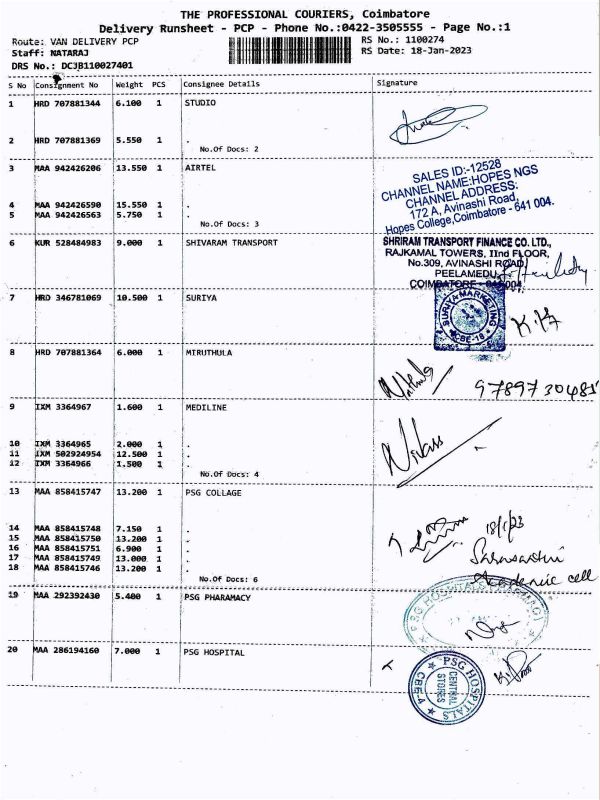 THE PROFESSIONAL COURIERS, Coimbatore
Delivery Runsheet - PCP - Phone No.:0422-3505555 - Page No.:1
Route: VAN DELIVERY PCP
RS No.: 1100274
Staff: NATARAJ
RS Date: 18-Jan-2023
DRS No.: DCJB110027401
S No Consignment No Weight PCS Consignee Details Signature
1 HRD 707881344 6.100 1 STUDIO
2 HRD 707881369 5.550 1 .
No.Of Docs: 2
3 MAA 942426206 13.550 1 AIRTEL
SALES ID:-12528
CHANNEL NAME:HOPES NGS
CHANNEL ADDRESS:
172 A, Avinashi Road,
Hopes College,Coimbatore - 641 004.
4 MAA 942426590 15.550 1 .
5 MAA 942426563 5.750 1 .
No.Of Docs: 3
6 KUR 528484983 9.000 1 SHIVARAM TRANSPORT
SHRIRAM TRANSPORT FINANCE CO. LTD.,
RAJKAMAL TOWERS, IInd FLOOR,
No.309, AVINASHI ROAD,
PEELAMEDU,
COIMBATORE - 641 004
7 HRD 346781069 10.500 1 SURIYA
SURIYA MARKETING
CBE-18
8 HRD 707881364 6.000 1 MIRUTHULA
9789730485
9 IXM 3364967 1.600 1 MEDILINE
10 IXM 3364965 2.000 1 .
11 IXM 502924954 12.500 1 .
12 IXM 3364966 1.500 1 .
No.Of Docs: 4
13 MAA 858415747 13.200 1 PSG COLLAGE
14 MAA 858415748 7.150 1 .
15 MAA 858415750 13.200 1 .
16 MAA 858415751 6.900 1 .
17 MAA 858415749 13.000 1 .
18 MAA 858415746 13.200 1 .
No.Of Docs: 6
18/1/23
Saraswathi
Academic cell
19 MAA 292392430 5.400 1 PSG PHARAMACY
PSG HOSPITALS
20 MAA 286194160 7.000 1 PSG HOSPITAL
PSG HOSPITALS
CENTRAL
STORES
CBE-4